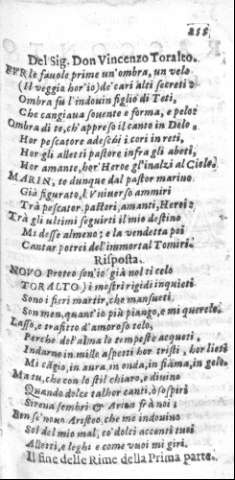 255
Del Sig. Don Vincenzo Toralto.
PER le fauole prime un'ombra, un velo
(Il veggia hor'io) de' cari alti secreti
Ombra fù l'indouin figlio di Teti,
Che cangiaua souente e forma, e pelo:
Ombra di te, ch'appreso il canto in Delo
Hor pescatore adeschi i cori in reti,
Hor gli alletti pastore infra gli abeti,
Hor amante, hor' Heroe gl'inalzi al Cielo.
MARIN, te dunque dal pastor marino
Già figurato, l'Vniuerso ammiri
Trà pescator, pastori, amanti, Heroi:
Trà gli ultimi seguirti il mio destino
Mi desse almeno; e la vendetta poi
Cantar potrei del'immortal Tomiri.
Risposta.
NOVO Proteo son'io già nol ti celo
TORALTO) è mostri rigidi inquieti
Sono i fieri martir, che mansueti
Son men, quant'io più piango, e mi querelo.
Lasso, e trafitto d'amoroso telo,
Perche del'alma le tempeste acqueti,
Indarno in mille aspetti hor tristi, hor lieti
Mi cãgio, in aura, in onda, in fiãma, in gelo.
Ma tu, che con lo stil chiaro, e diuino
Quando dolce talhor canti, ò sospiri
Sirena sembri & Arion frà noi:
Ben se' nouo Aristeo, che me indouino
Sol del mio mal, co' dolci accenti tuoi
Alletti, e leghi e come vuoi mi giri.
Il fine delle Rime della Prima parte.